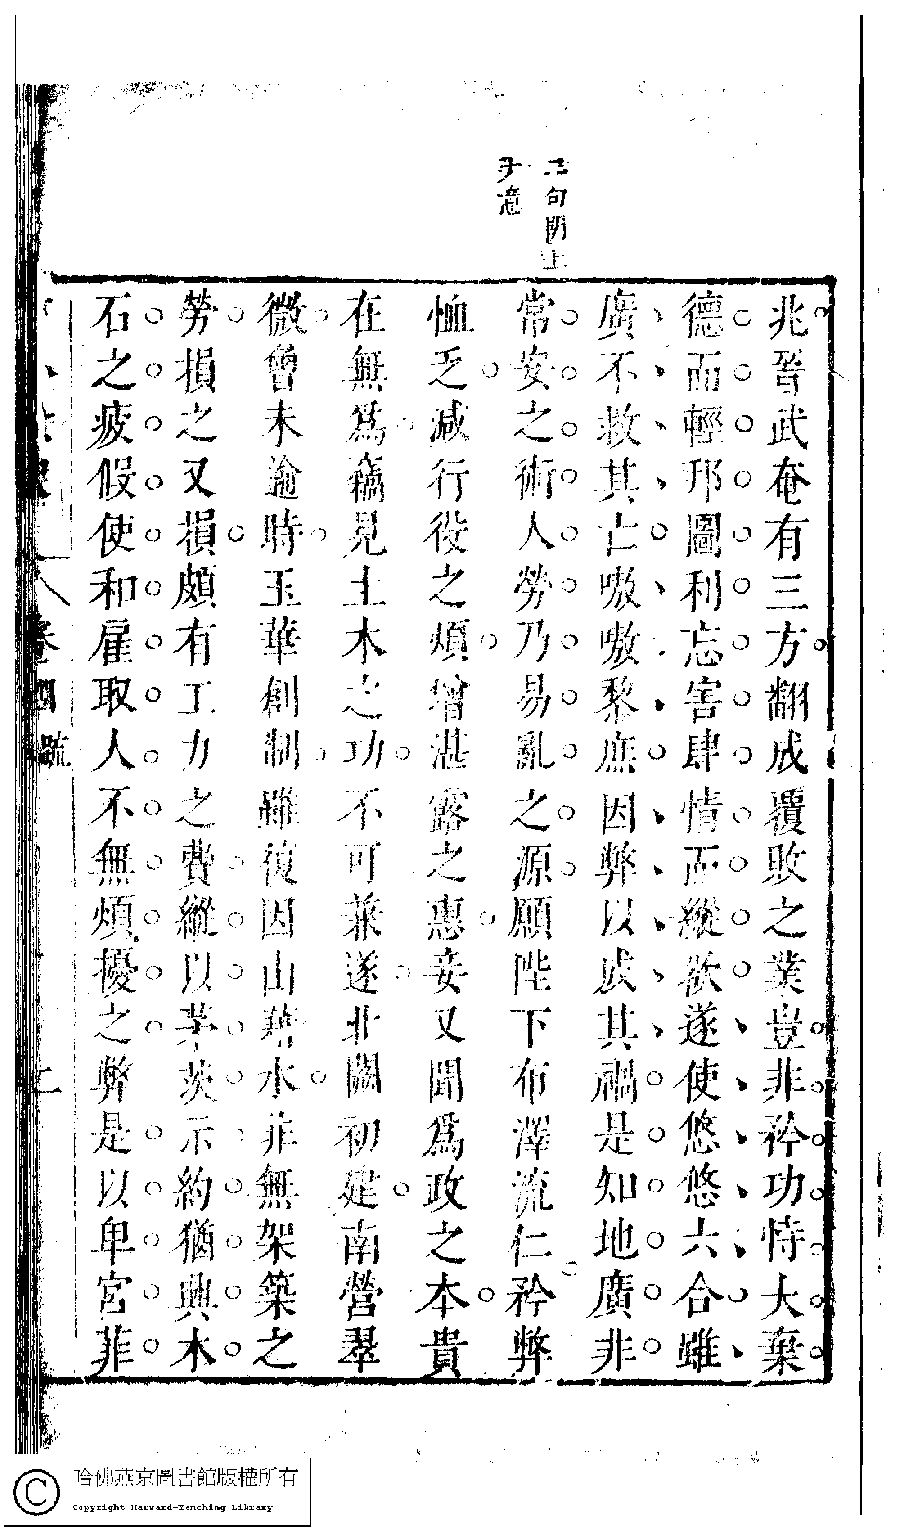 二句関上
予意
兆晉武奄有三方翻成覆敗之業豈非矜功恃大棄
德而輕邦圖利忘害肆情而縱欲遂使悠悠六合雖
廣不救其亡嗷嗷黎庶因弊以成其禍是知地廣非
常安之術人勞乃易亂之源願陛下布澤流仁矜弊
恤乏減行役之煩增湛露之惠妾又聞爲政之本貴
在無爲竊見土木之功不可兼遂北闕初建南營翠
微曾未逾時玉華創制雖復因山藉水非無架築之
勞損之又損頗有工力之費縱以茅茨示約猶興木
石之疲假使和雇取人不無煩擾之弊是以卑宮菲
卷四 疏
哈佛燕京圖書館版權所有
Copyright Harvard-Yenching Library